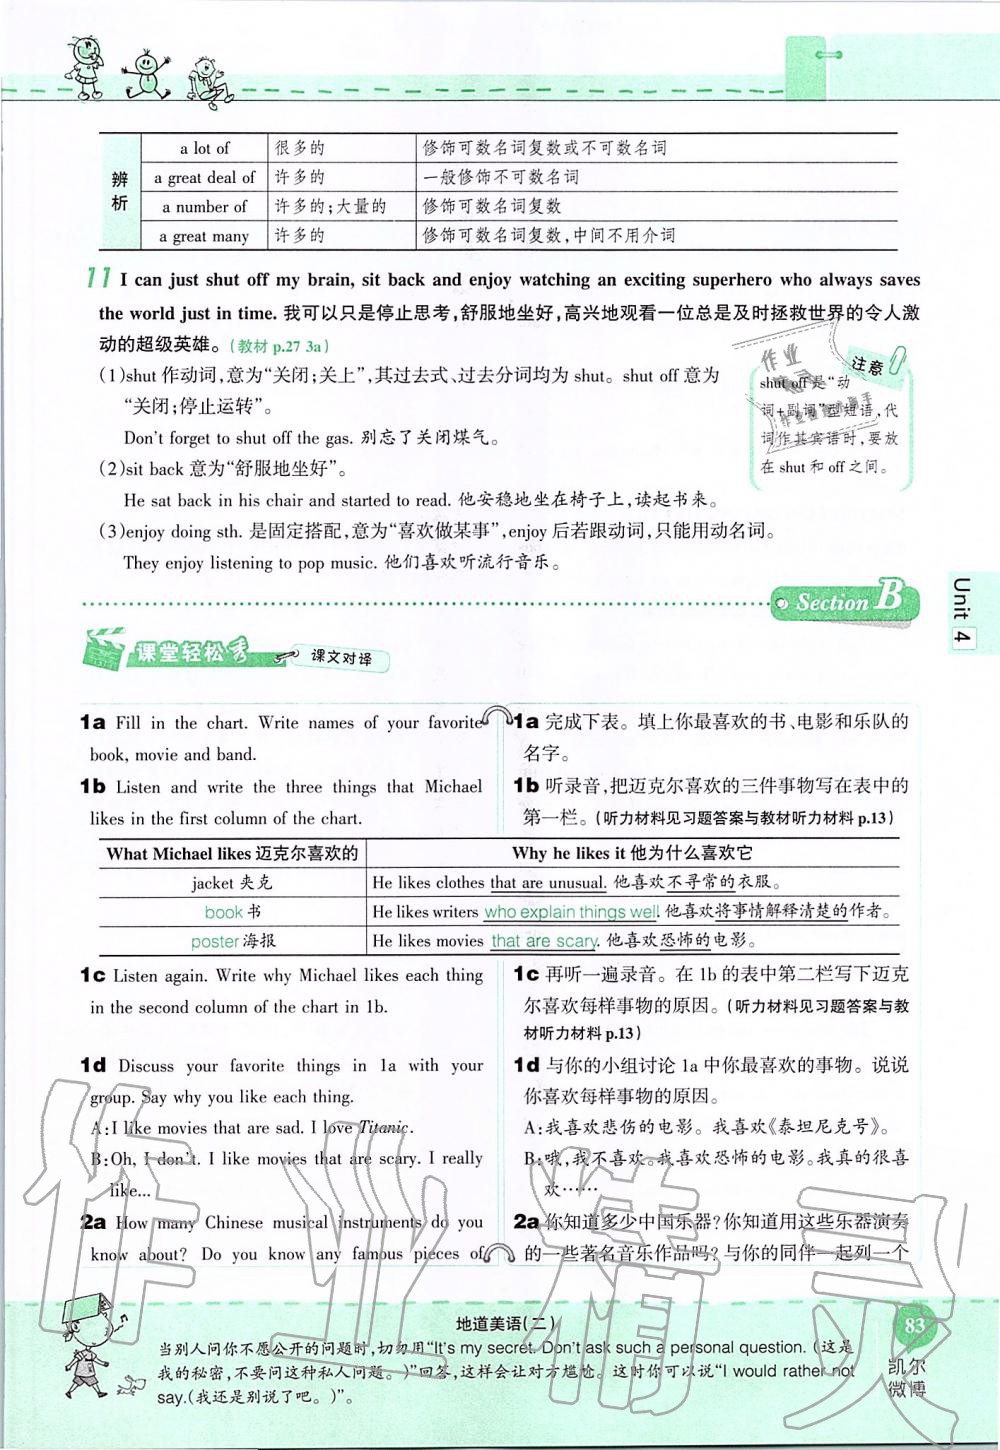 辨析
a lot of 很多的 修饰可数名词复数或不可数名词
a great deal of 许多的 一般修饰不可数名词
a number of 许多的;大量的 修饰可数名词复数
a great many 许多的 修饰可数名词复数,中间不用介词
11 I can just shut off my brain, sit back and enjoy watching an exciting superhero who always saves
the world just in time. 我可以只是停止思考,舒服地坐好,高兴地观看一位总是及时拯救世界的令人激
动的超级英雄。(教材 p.27 3a)
(1)shut 作动词,意为“关闭;关上”,其过去式、过去分词均为 shut。shut off 意为
“关闭;停止运转”。
Don't forget to shut off the gas. 别忘了关闭煤气。
(2)sit back 意为“舒服地坐好”。
He sat back in his chair and started to read. 他安稳地坐在椅子上,读起书来。
(3)enjoy doing sth. 是固定搭配,意为“喜欢做某事”,enjoy 后若跟动词,只能用动名词。
They enjoy listening to pop music. 他们喜欢听流行音乐。
注意
shut off 是“动
词+副词”型短语,代
词作其宾语时,要放
在 shut 和 off 之间。
Section B
Unit 4
课堂轻松秀 课文对译
1a Fill in the chart. Write names of your favorite
book, movie and band.
1b Listen and write the three things that Michael
likes in the first column of the chart.
1a 完成下表。填上你最喜欢的书、电影和乐队的
名字。
1b 听录音,把迈克尔喜欢的三件事物写在表中的
第一栏。(听力材料见习题答案与教材听力材料 p.13)
What Michael likes 迈克尔喜欢的 Why he likes it 他为什么喜欢它
jacket 夹克 He likes clothes that are unusual. 他喜欢不寻常的衣服。
book 书 He likes writers who explain things well. 他喜欢将事情解释清楚的作者。
poster 海报 He likes movies that are scary. 他喜欢恐怖的电影。
1c Listen again. Write why Michael likes each thing
in the second column of the chart in 1b.
1d Discuss your favorite things in 1a with your
group. Say why you like each thing.
A:I like movies that are sad. I love Titanic.
B:Oh, I don't. I like movies that are scary. I really
like...
2a How many Chinese musical instruments do you
know about? Do you know any famous pieces of
1c 再听一遍录音。在 1b 的表中第二栏写下迈克
尔喜欢每样事物的原因。(听力材料见习题答案与教
材听力材料 p.13)
1d 与你的小组讨论 1a 中你最喜欢的事物。说说
你喜欢每样事物的原因。
A:我喜欢悲伤的电影。我喜欢《泰坦尼克号》。
B:哦,我不喜欢。我喜欢恐怖的电影。我真的很喜
欢……
2a 你知道多少中国乐器?你知道用这些乐器演奏
的一些著名音乐作品吗?与你的同伴一起列一个
作业精灵
地道美语(二)
当别人问你不愿公开的问题时,切勿用“It's my secret. Don't ask such a personal question. (这是
我的秘密,不要问这种私人问题。)”回答,这样会让对方尴尬。这时你可以说“I would rather not
say.(我还是别说了吧。)”。
83
凯尔
微博